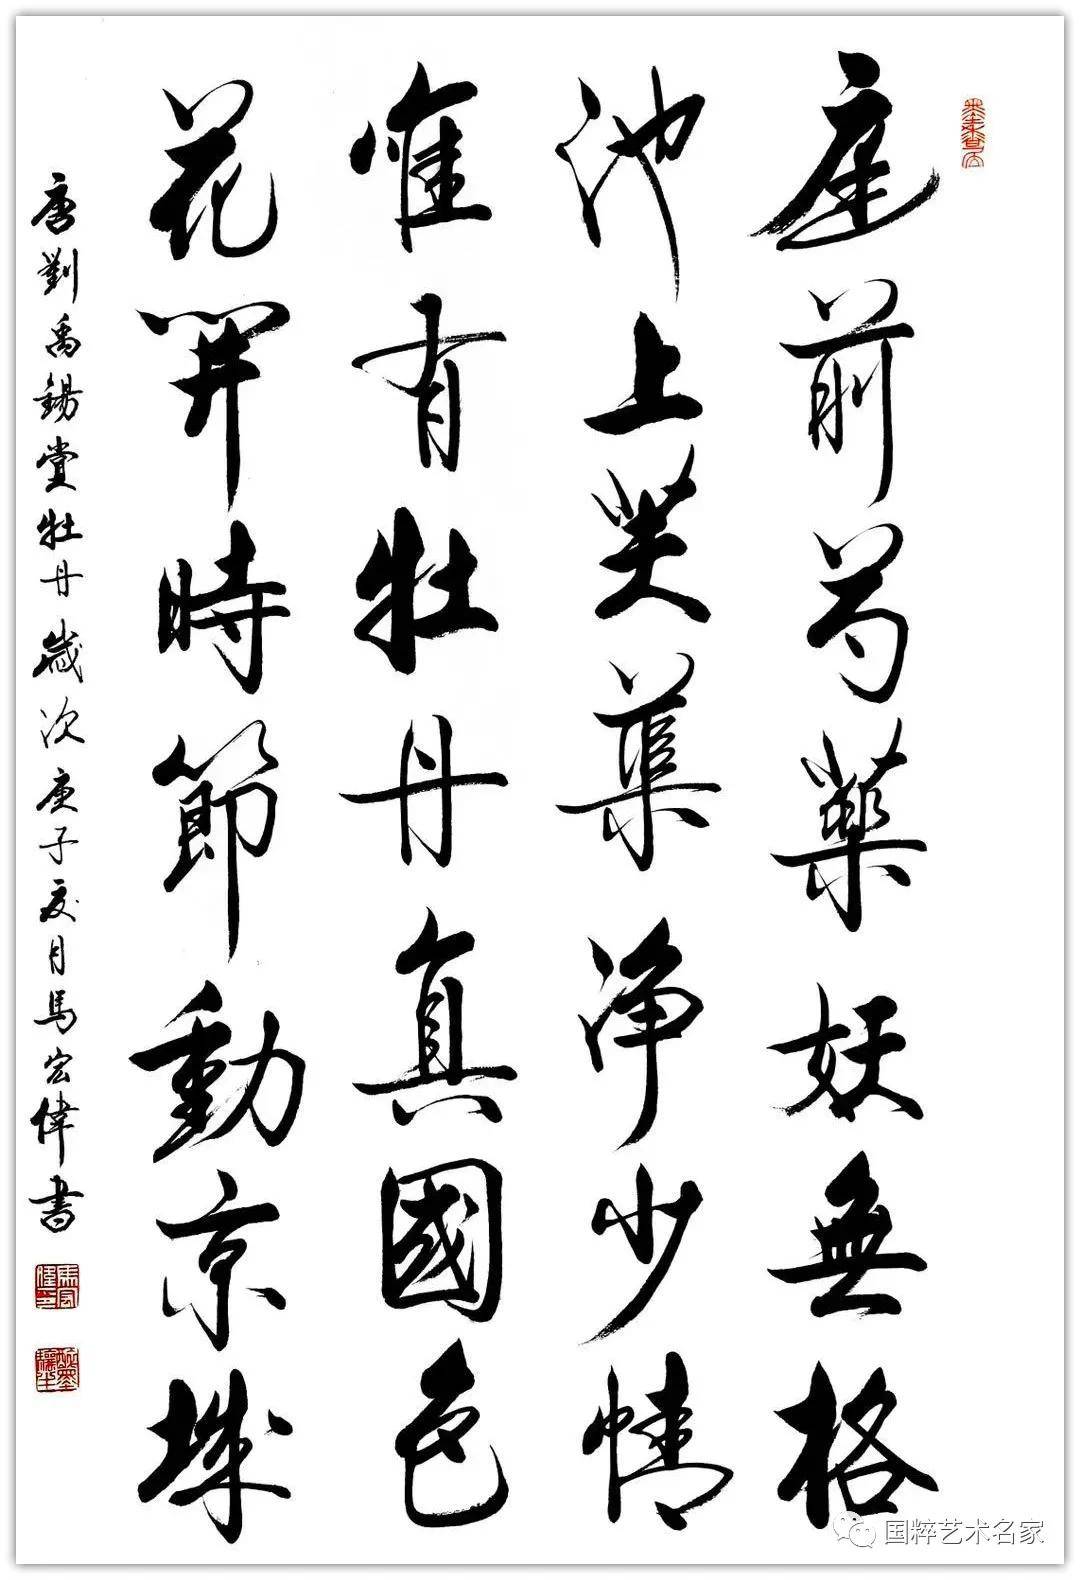 庭前芍藥妖無格
池上芙蕖淨少情
唯有牡丹真國色
花開時節動京城
唐劉禹錫賞牡丹歲次庚子夏月馬宏偉書
馬宏偉印
国粹艺术名家